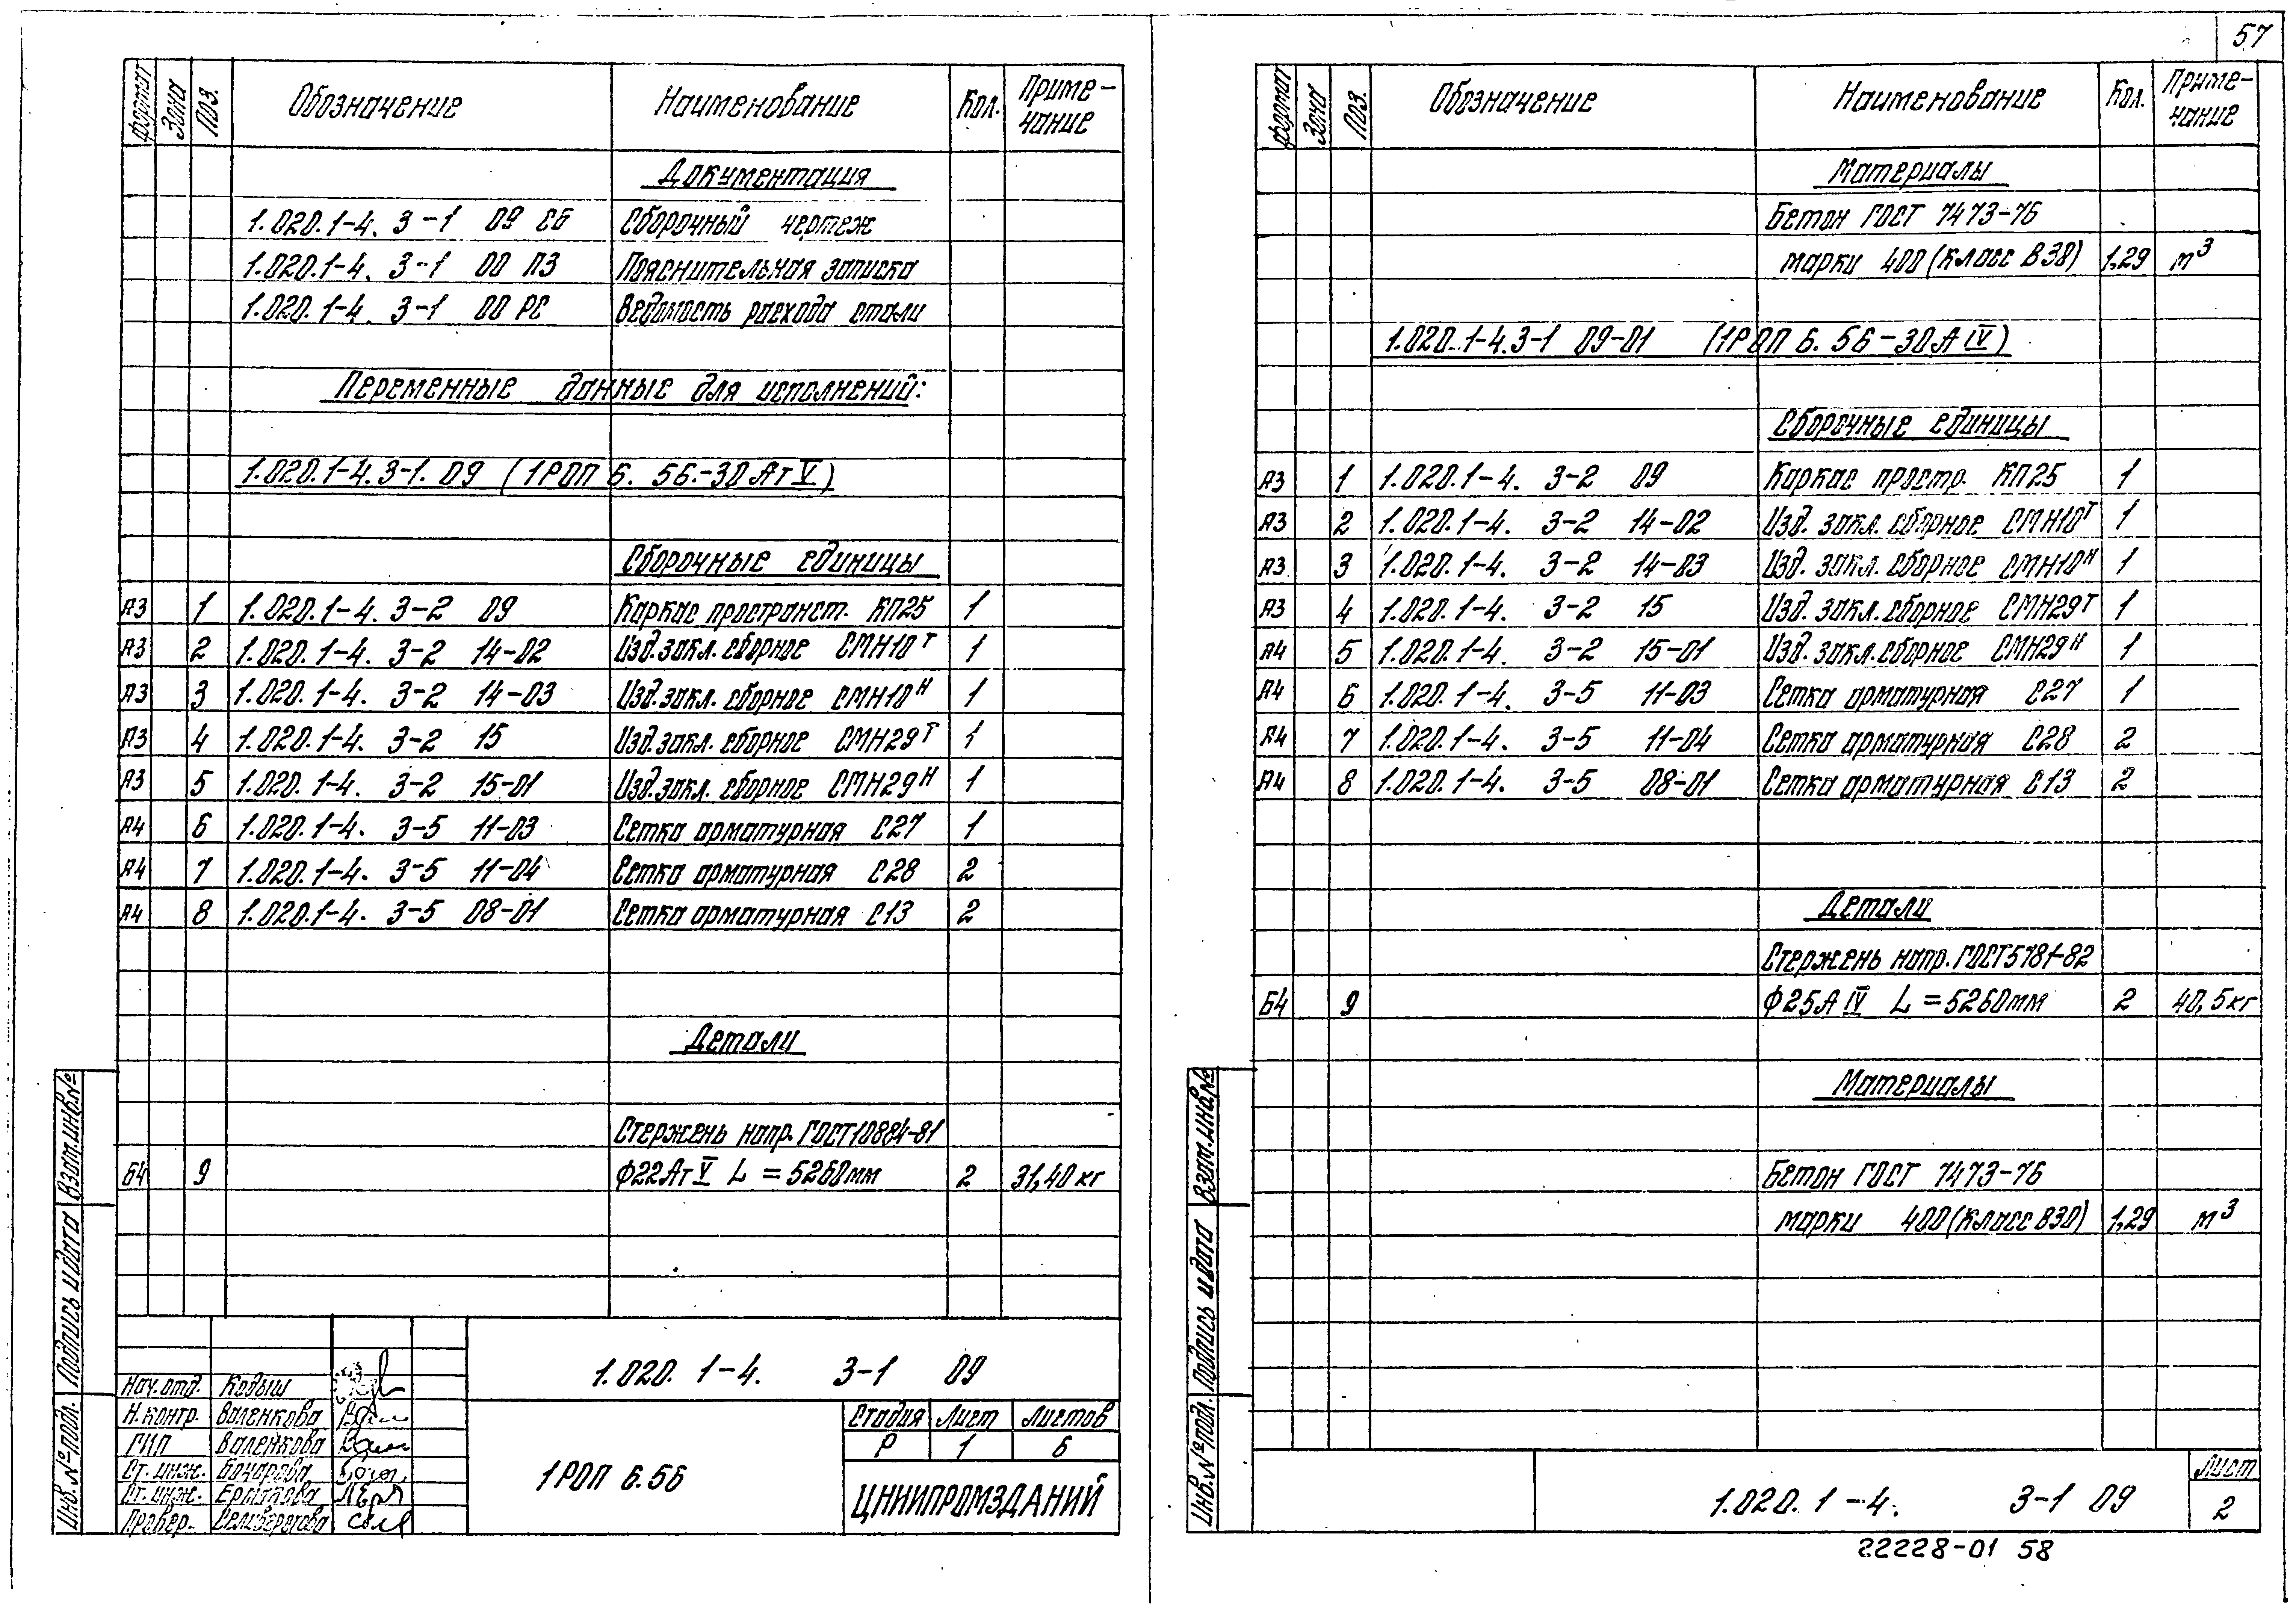 57
Формат Зона Поз. Обозначение Наименование Кол. Приме-
чание
Документация
1.020.1-4. 3-1 09 СБ Сборочный чертеж
1.020.1-4. 3-1 00 ПЗ Пояснительная записка
1.020.1-4. 3-1 00 РС Ведомость расхода стали
Переменные данные для исполнений:
1.020.1-4.3-1. 09 (1РОП 6. 56.-30 Ат V)
Сборочные единицы
А3 1 1.020.1-4. 3-2 09 Каркас пространст. КП25 1
А3 2 1.020.1-4. 3-2 14-02 Изд. закл. сборное СМН10Т 1
А3 3 1.020.1-4. 3-2 14-03 Изд. закл. сборное СМН10Н 1
А3 4 1.020.1-4. 3-2 15 Изд. закл. сборное СМН29Т 1
А3 5 1.020.1-4. 3-2 15-01 Изд. закл. сборное СМН29Н 1
А4 6 1.020.1-4. 3-5 11-03 Сетка арматурная С27 1
А4 7 1.020.1-4. 3-5 11-04 Сетка арматурная С28 2
А4 8 1.020.1-4. 3-5 08-01 Сетка арматурная С13 2
Детали
Стержень напр. ГОСТ 10884-81
Б4 9 Ф22Ат V L = 5260мм 2 31,40 кг
Инв. № подл. Подпись и дата Взам. инв. №
1.020. 1-4. 3-1 09
Нач. отд. Кодыш
Н. контр. Валенкова
ГИП Валенкова
Ст. инж. Бочарова
Ст. инж. Ермакова
Провер.
1РОП 6.56
Стадия Лист Листов
Р 1 6
ЦНИИПРОМЗДАНИЙ
Формат Зона Поз. Обозначение Наименование Кол. Приме-
чание
Материалы
Бетон ГОСТ 7473-76
марки 400 (класс В30) 1,29 м³
1.020.1-4.3-1 09-01 (1РОП 6. 56-30 А IV)
Сборочные единицы
А3 1 1.020.1-4. 3-2 09 Каркас простр. КП25 1
А3 2 1.020.1-4. 3-2 14-02 Изд. закл. сборное СМН10Т 1
А3 3 1.020.1-4. 3-2 14-03 Изд. закл. сборное СМН10Н 1
А3 4 1.020.1-4. 3-2 15 Изд. закл. сборное СМН29Т 1
А4 5 1.020.1-4. 3-2 15-01 Изд. закл. сборное СМН29Н 1
А4 6 1.020.1-4. 3-5 11-03 Сетка арматурная С27 1
А4 7 1.020.1-4. 3-5 11-04 Сетка арматурная С28 2
А4 8 1.020.1-4. 3-5 08-01 Сетка арматурная С13 2
Детали
Стержень напр. ГОСТ 5781-82
Б4 9 Ф25А IV L = 5260мм 2 40,5 кг
Материалы
Бетон ГОСТ 7473-76
марки 400 (класс В30) 1,29 м³
Инв. № подл. Подпись и дата Взам. инв. №
1.020. 1-4. 3-1 09
Лист
2
22228-01 58